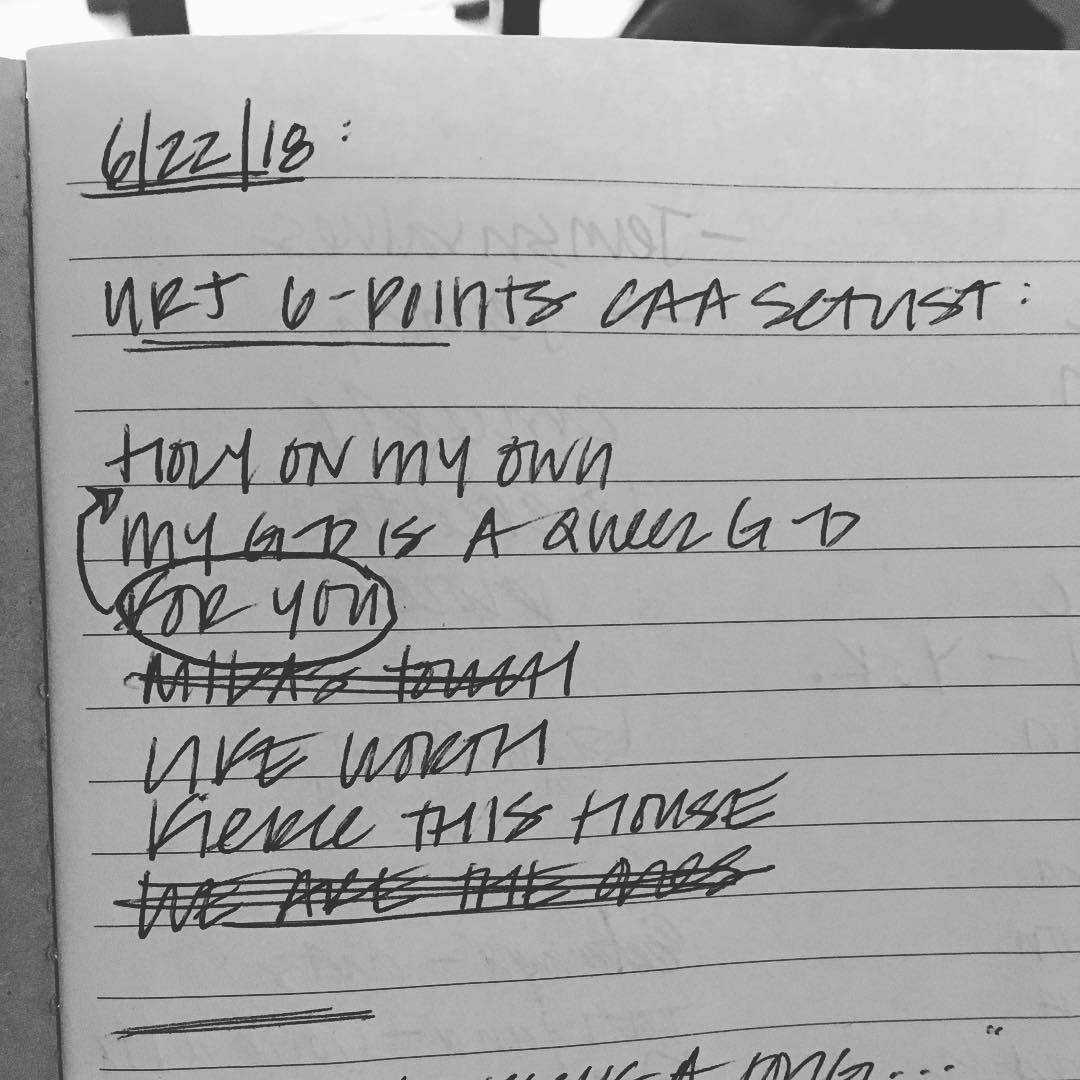 6/22/18:
URJ 6-POINTS CAA SETLIST:
HOLY ON MY OWN
MY G-D IS A QUEER G-D
FOR YOU
MIDAS TOUCH
LIKE WORTH
PIERCE THIS HOUSE
WE ARE THE ONES